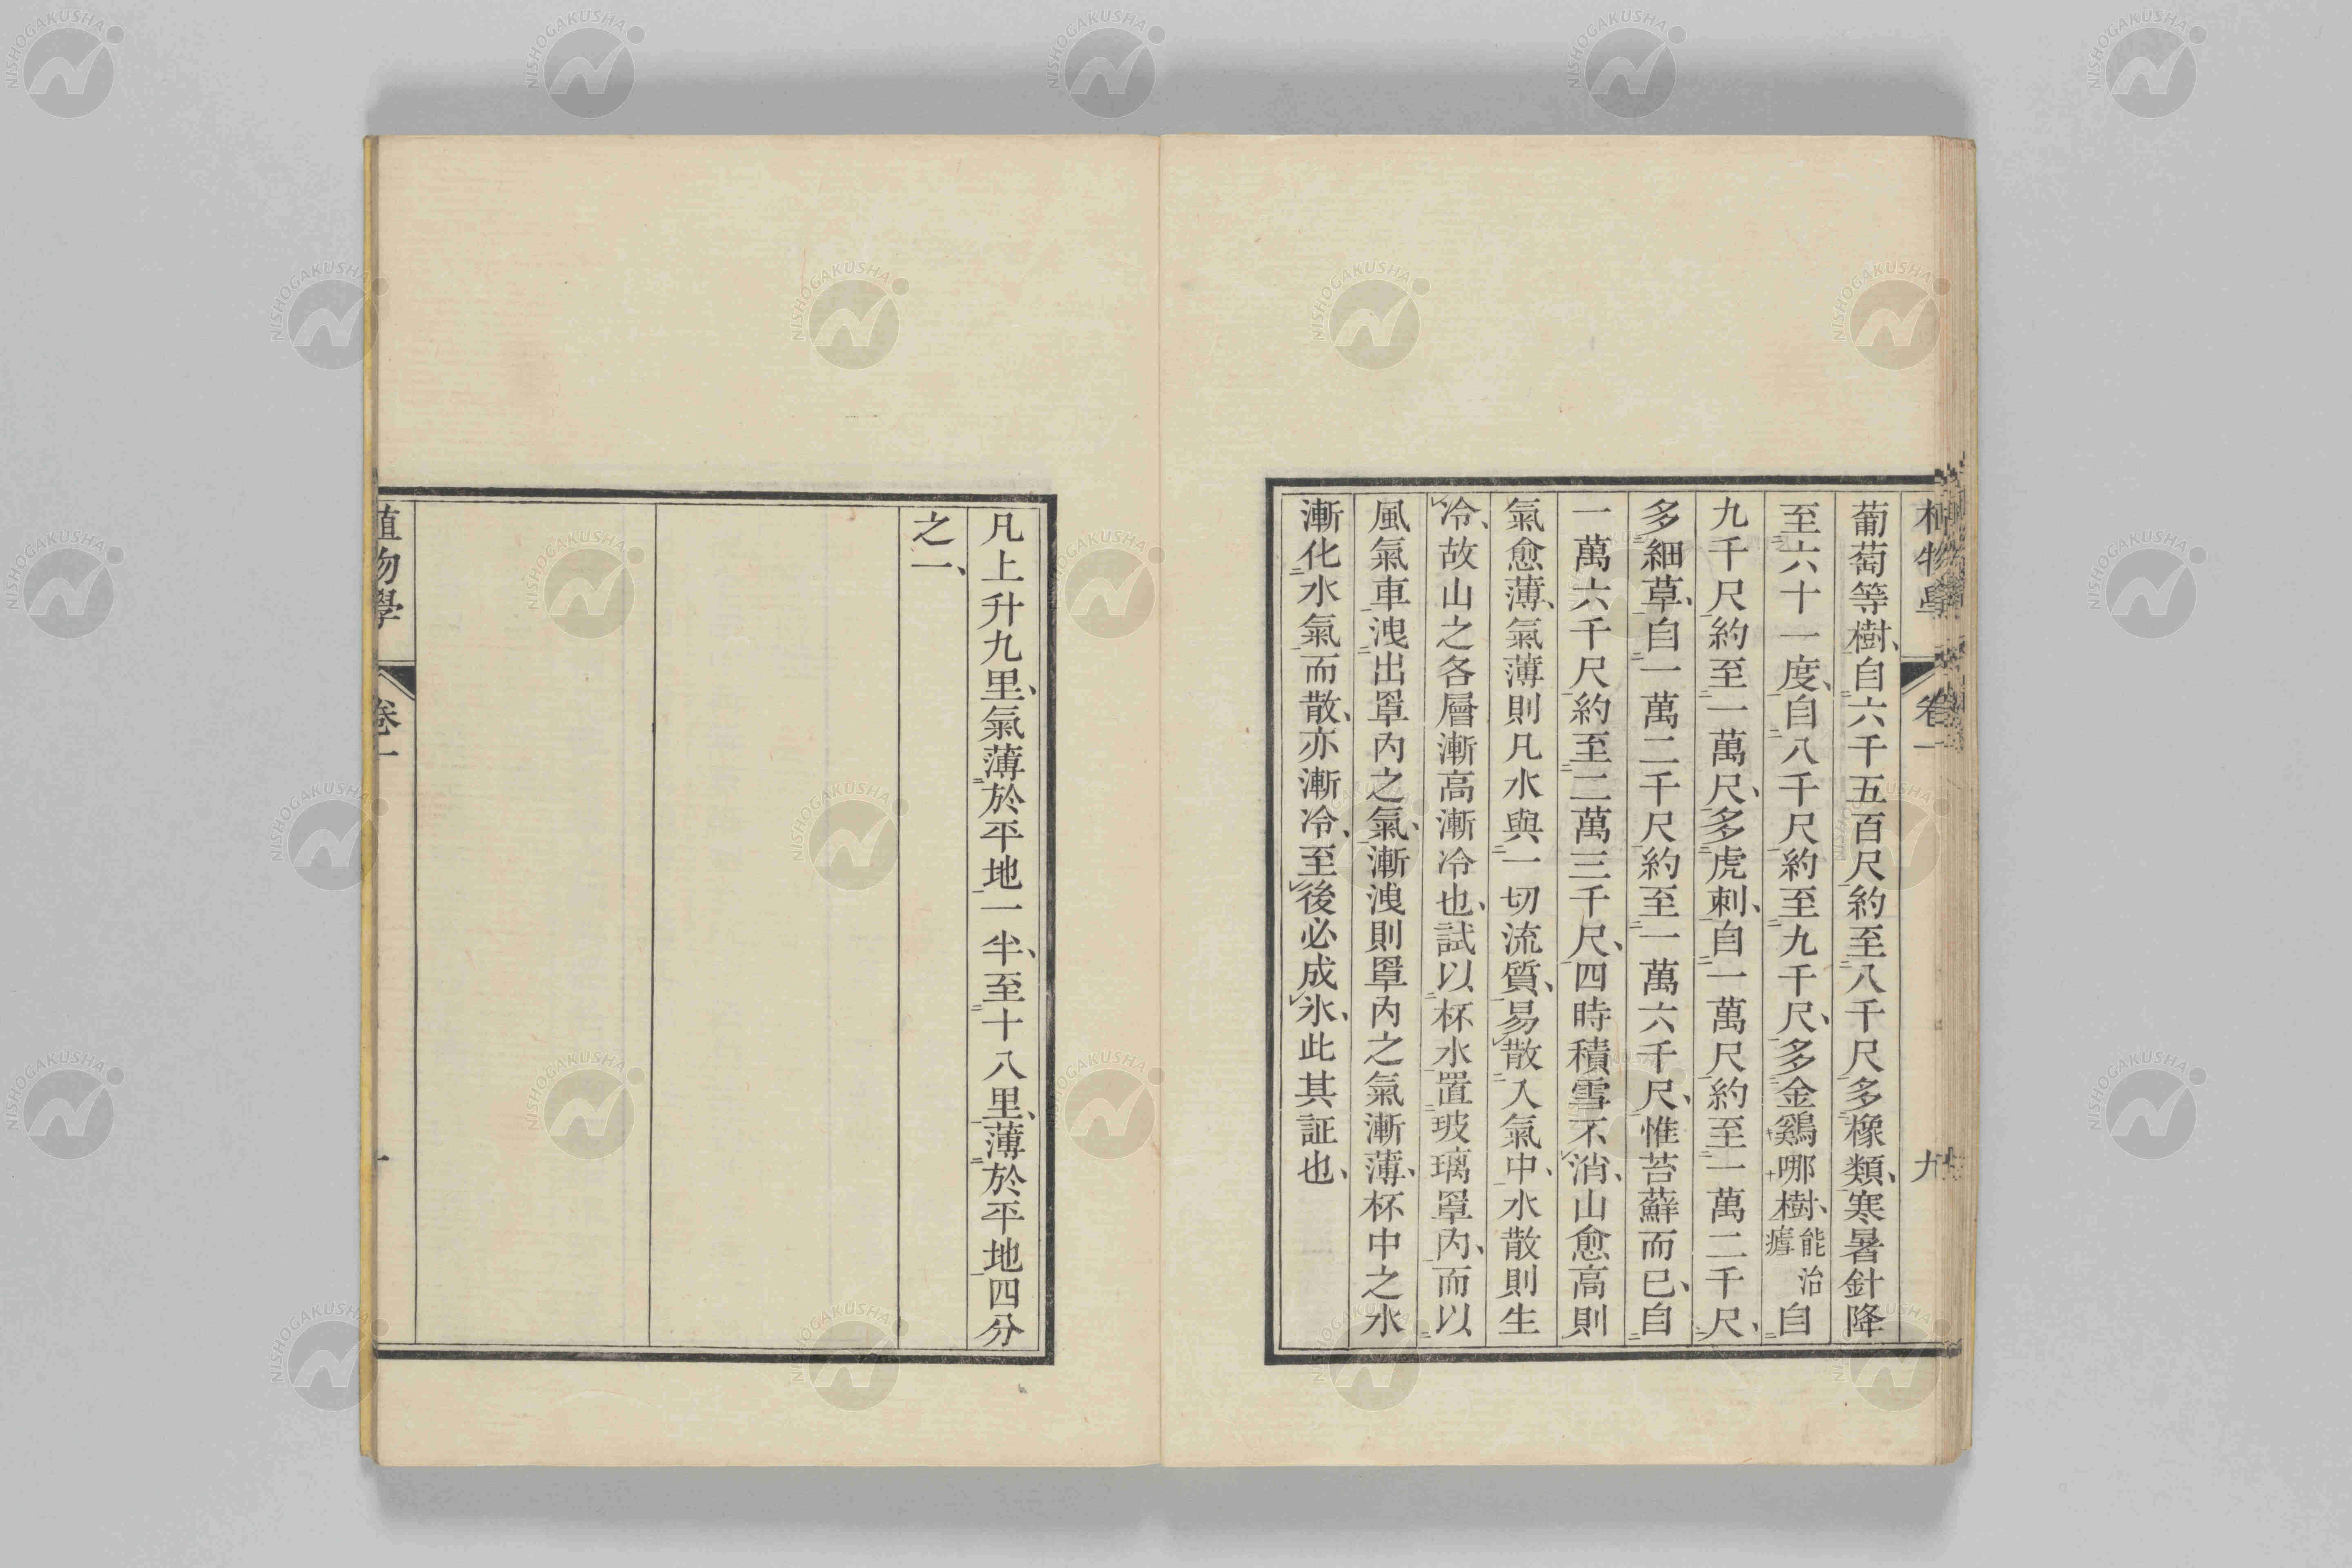 植物學 卷一 九
葡萄等樹、自六千五百尺約至八千尺多橡類、寒暑針降
至六十一度、自八千尺約至九千尺、多金鷄哪樹、能治瘧自
九千尺約至一萬尺、多虎刺、自一萬尺約至一萬二千尺、
多細草、自一萬二千尺約至一萬六千尺、惟苔蘚而已、自
一萬六千尺約至二萬三千尺、四時積雪不消、山愈高則
氣愈薄、氣薄則凡水與一切流質、易散入氣中、水散則生
冷、故山之各層漸高漸冷也、試以杯水置玻璃罩內、而以
風氣車洩出罩內之氣、漸洩則罩內之氣漸薄、杯中之水
漸化水氣而散、亦漸冷、至後必成氷、此其証也、
凡上升九里、氣薄於平地一半、至十八里、薄於平地四分
之一、
植物學 卷一
NISHOGAKUSHA